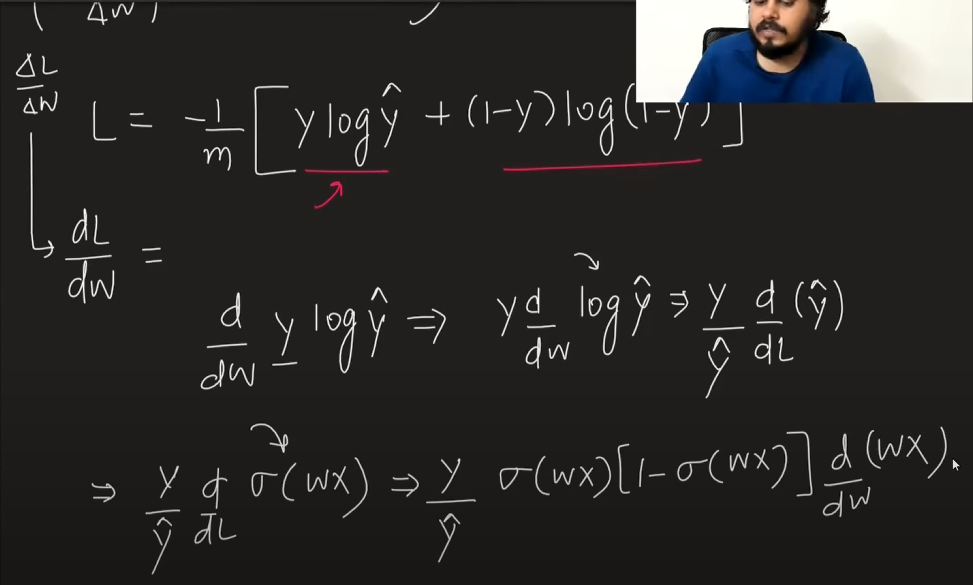 ( ΔW )
ΔL/ΔW
L = -1/m [ y log ŷ + (1-y) log (1-ŷ) ]
dL/dW =
d/dW y log ŷ ⇒ y d/dW log ŷ ⇒ y/ŷ d/dL (ŷ)
⇒ y/ŷ d/dL σ(WX) ⇒ y/ŷ σ(WX)[1-σ(WX)] d/dW (WX)